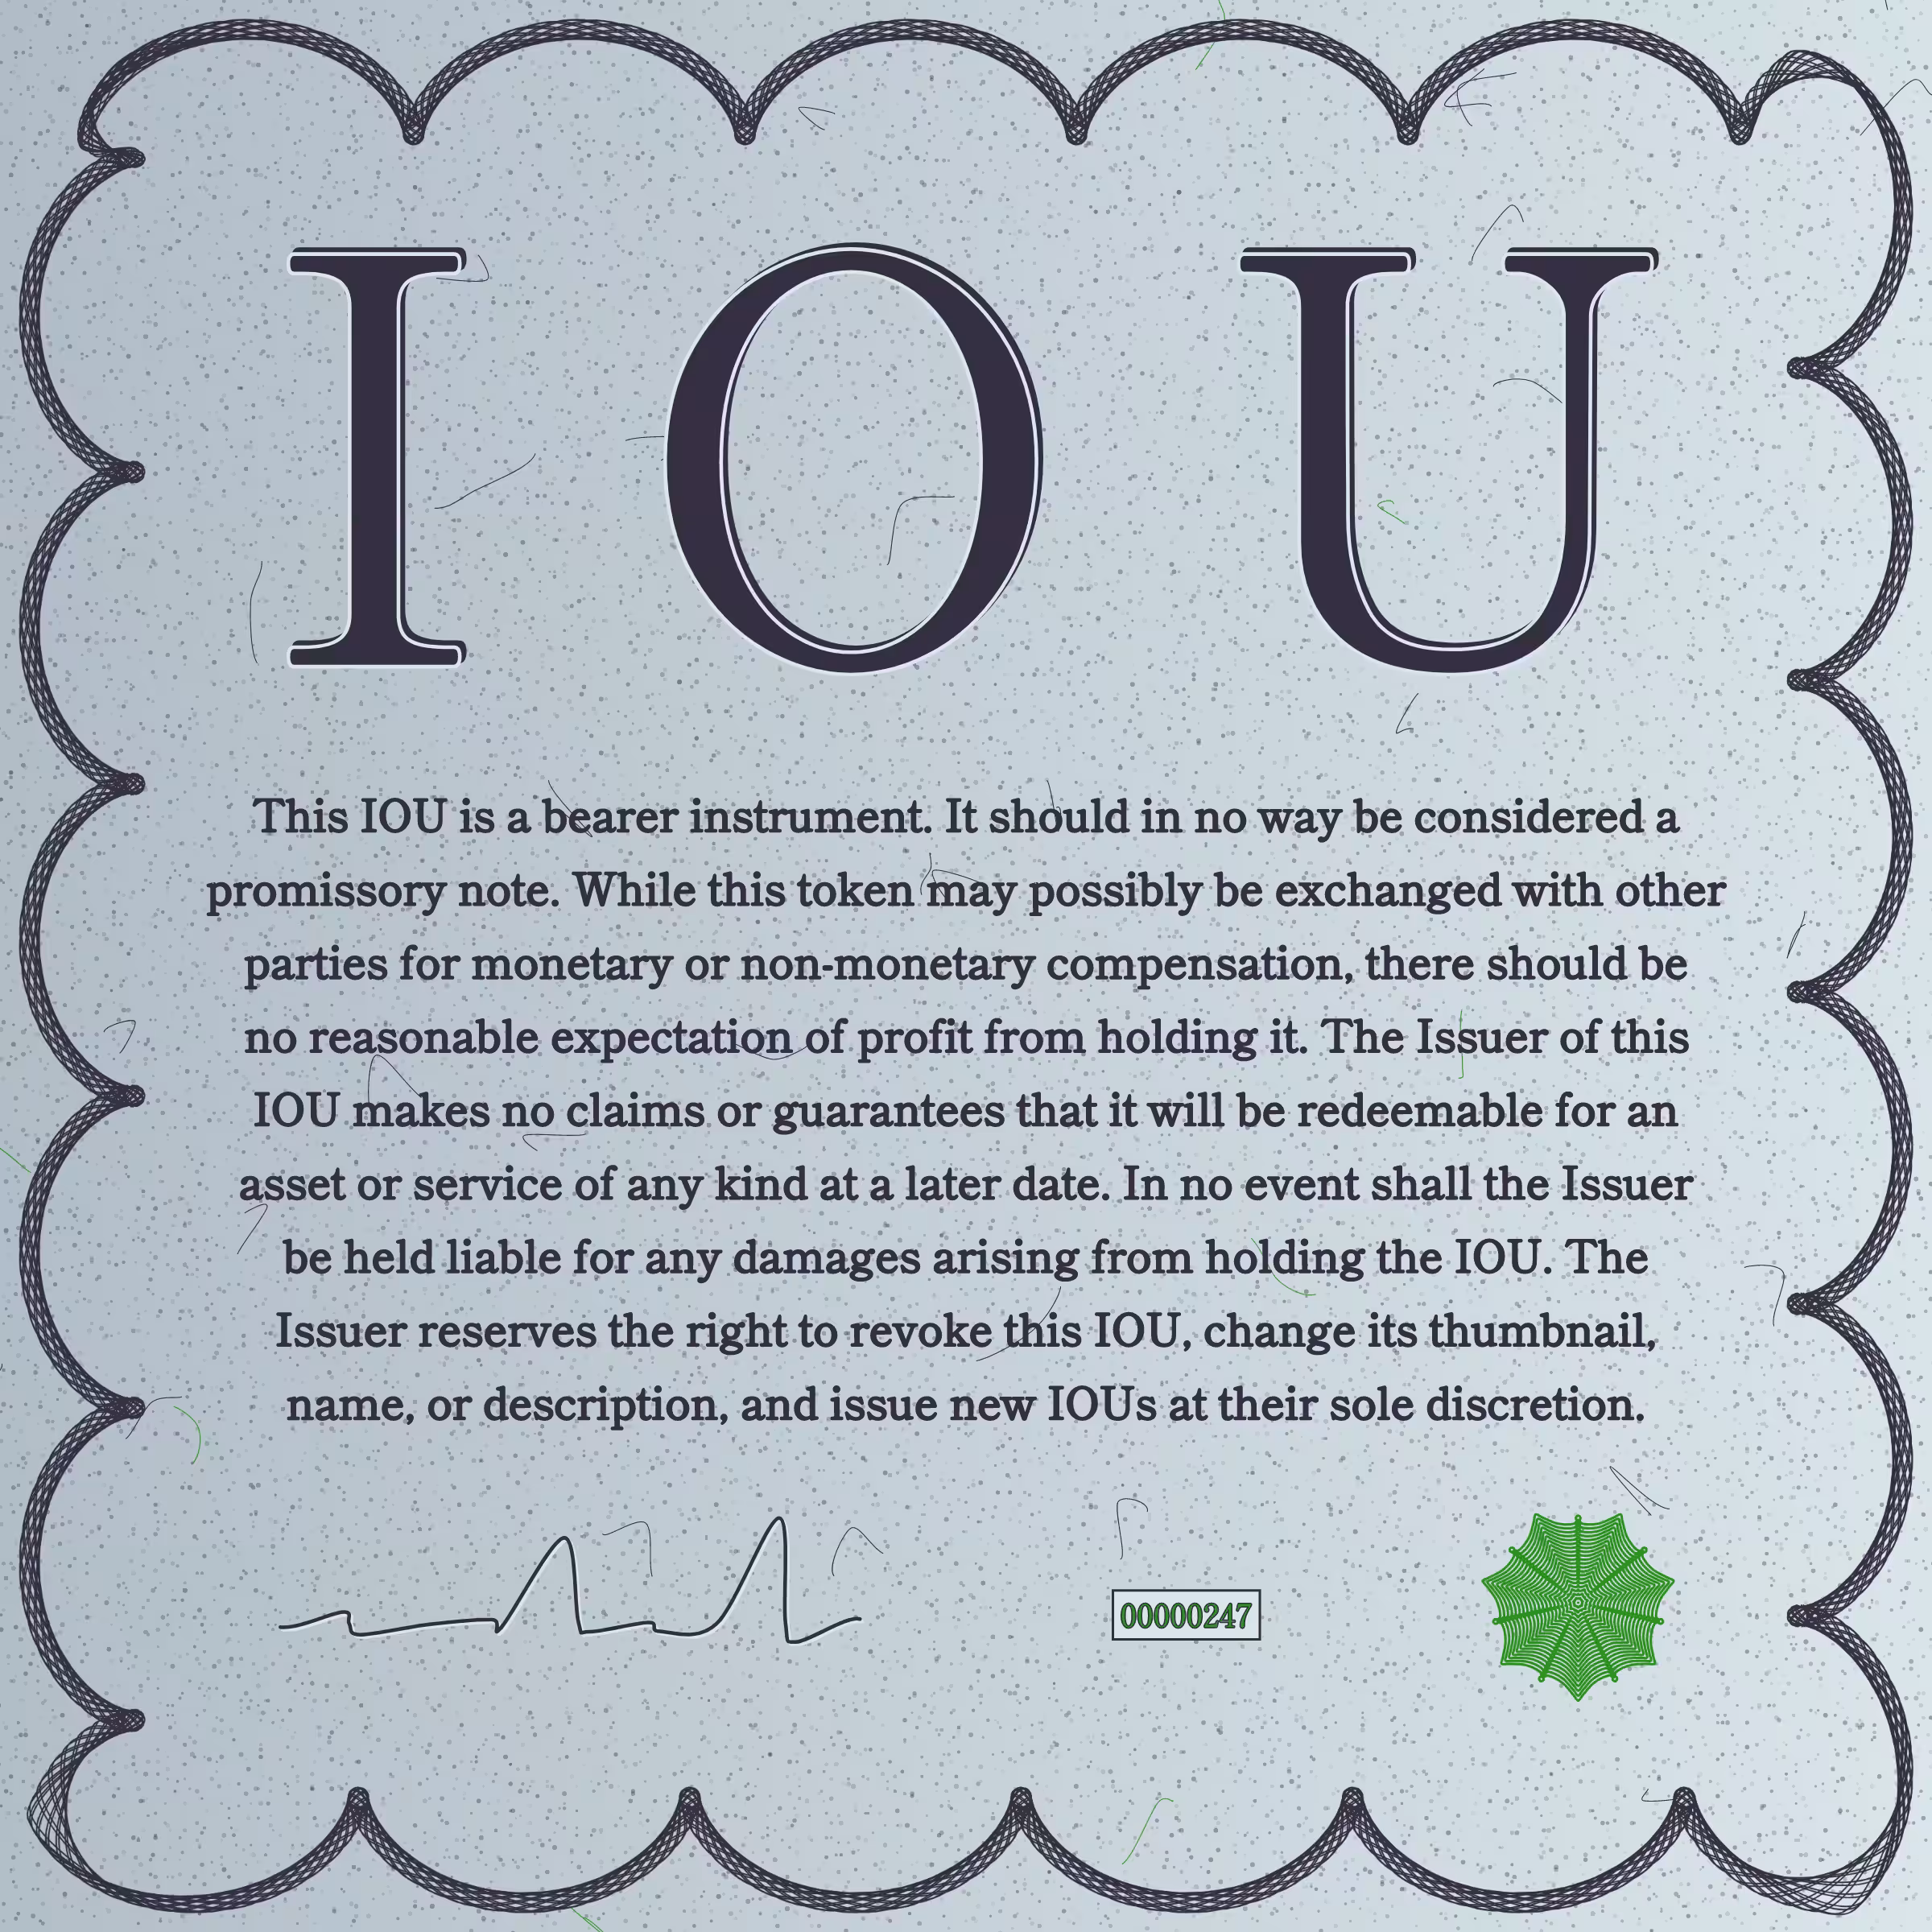 I O U
This IOU is a bearer instrument. It should in no way be considered a
promissory note. While this token may possibly be exchanged with other
parties for monetary or non-monetary compensation, there should be
no reasonable expectation of profit from holding it. The Issuer of this
IOU makes no claims or guarantees that it will be redeemable for an
asset or service of any kind at a later date. In no event shall the Issuer
be held liable for any damages arising from holding the IOU. The
Issuer reserves the right to revoke this IOU, change its thumbnail,
name, or description, and issue new IOUs at their sole discretion.
00000247